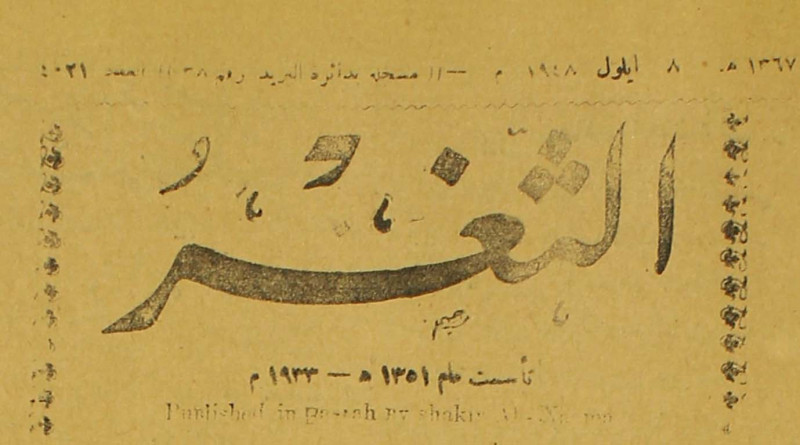 ١٣٦٧ ه. ٨ ايلول ١٩٤٨ م — مسجلة بدائرة البريد رقم العدد
الثغر
رحيم
تأسست عام ١٣٥١ ه — ١٩٣٣ م
Published in basrah By shakir Al-Na ma